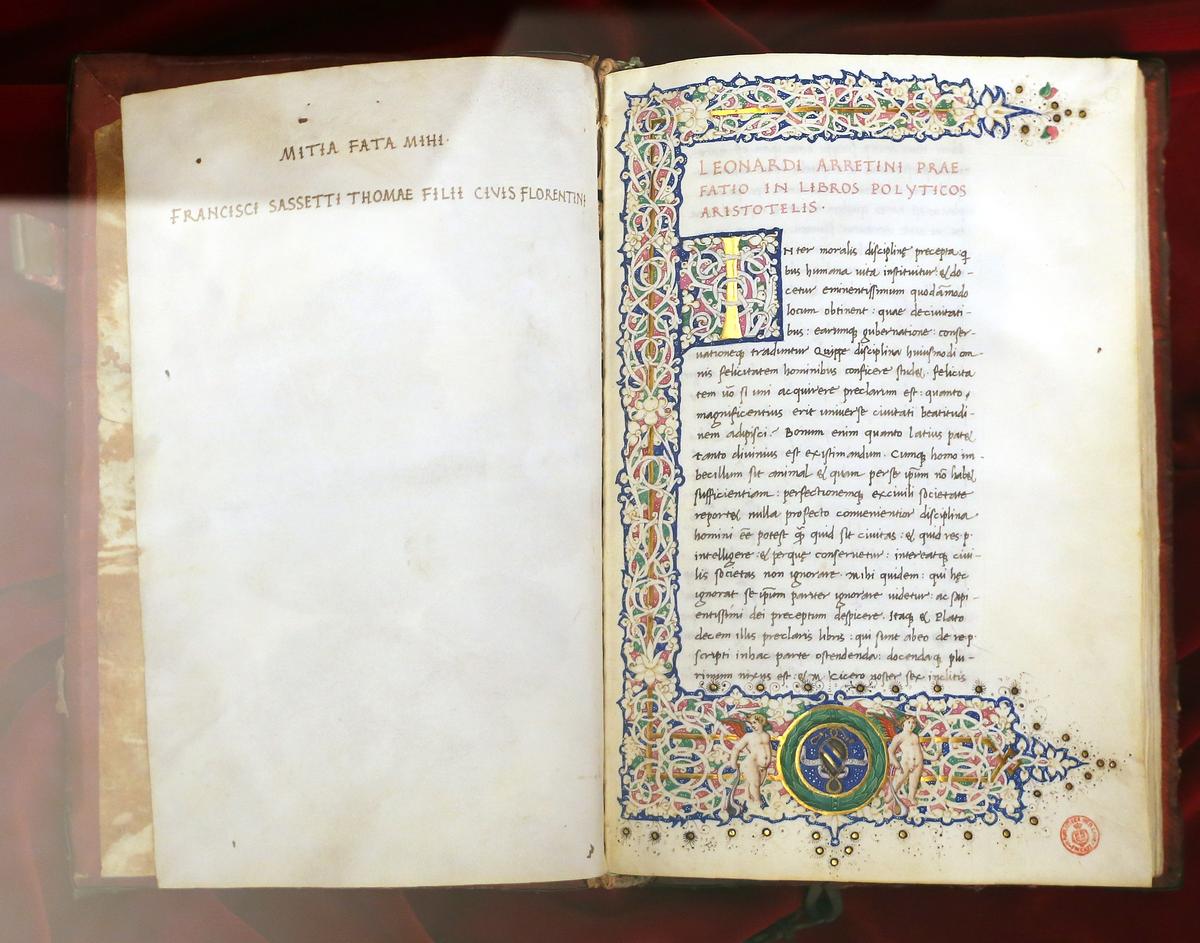 MITIA FATA MIHI·
FRANCISCI SASSETTI THOMAE FILII CIVIS FLORENTINI
LEONARDI ARRETINI PRAE-
FATIO IN LIBROS POLYTICOS
ARISTOTELIS·
INter moralis disciplinę precepta q
bus humana uita instituitur: & do-
cetur eminentissimum quodāmodo
locum obtinent: quae de ciuitati-
bus: earumq; gubernatione: conser-
uationeq; traduntur Quippe disciplina huiusmodi om-
nis felicitatem hominibus conficere studet. felicita
tem uo si uni acquirere preclarum est: quanto
magnificentius erit uniuerse ciuitati beatitudi-
nem adipisci? Bonum enim quanto latius patet
tanto diuinius est existimandum. Cumq; homo im-
becillum sit animal & quam per se ipum nō habet
sufficientiam: perfectionemq; ex ciuili societate
reportet nulla profecto conuenientior disciplina
homini eē potest q̄ quid sit ciuitas: & quid res p·
intelligere: & perque conseruetur: intereatq; ciui-
lis societas non ignorare. Mihi quidem: qui hęc
ignorat se ipum pariter ignorare uidetur: ac sapi-
entissimi dei preceptum despicere. Itaq; & Plato
decem illis preclaris libris: qui sunt ab eo de re p·
scripti in hac parte ostendenda: docendaq; plu-
rimum nixus est: & M. Cicero noster sex inclitis